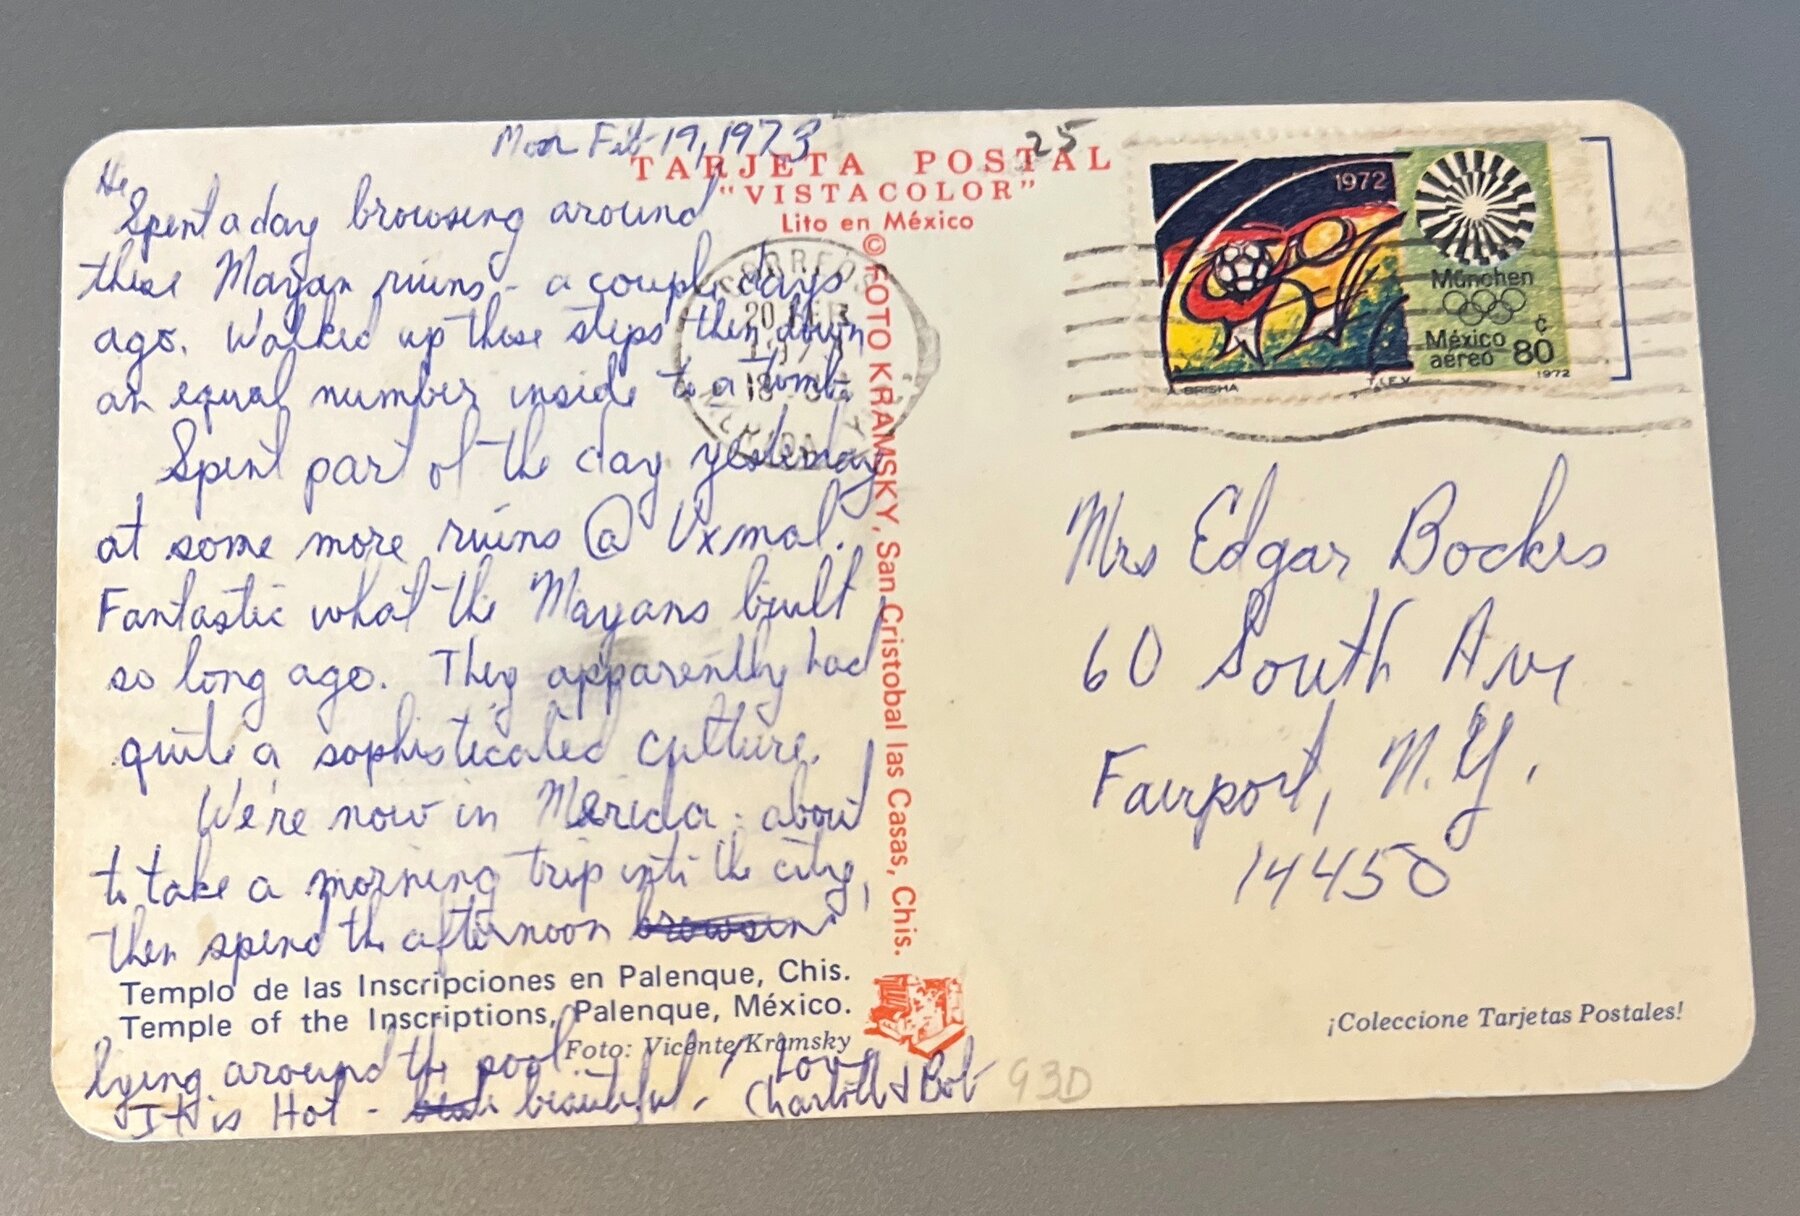 Mon Feb 19, 1973
25
TARJETA POSTAL
"VISTACOLOR"
Lito en México
He
Spent a day browsing around
these Mayan ruins - a couple days
ago. Walked up these steps then down
an equal number inside to a tomb.
Spent part of the day yesterday
at some more ruins @ Uxmal.
Fantastic what the Mayans built
so long ago. They apparently had
quite a sophisticated culture.
We're now in Merida - about
to take a morning trip into the city,
then spend the afternoon browsin
Templo de las Inscripciones en Palenque, Chis.
Temple of the Inscriptions, Palenque, México.
Foto: Vicente Kramsky
lying around the pool.
It is Hot - beautiful. Love
Charlott & Bob
93D
© FOTO KRAMSKY, San Cristobal las Casas, Chis.
CORREOS
20 FEB
MERIDA YUC
1972
München
México
aéreo ¢80
1972
Mrs Edgar Bockes
60 South Ave
Fairport, N.Y.
14450
¡Coleccione Tarjetas Postales!